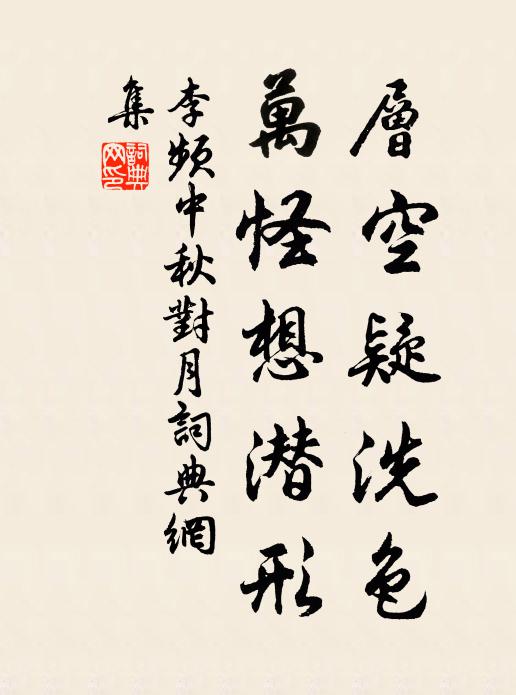 層空疑洗色
萬怪想潜形
李頻中秋對月詞典網
集
詞典網印